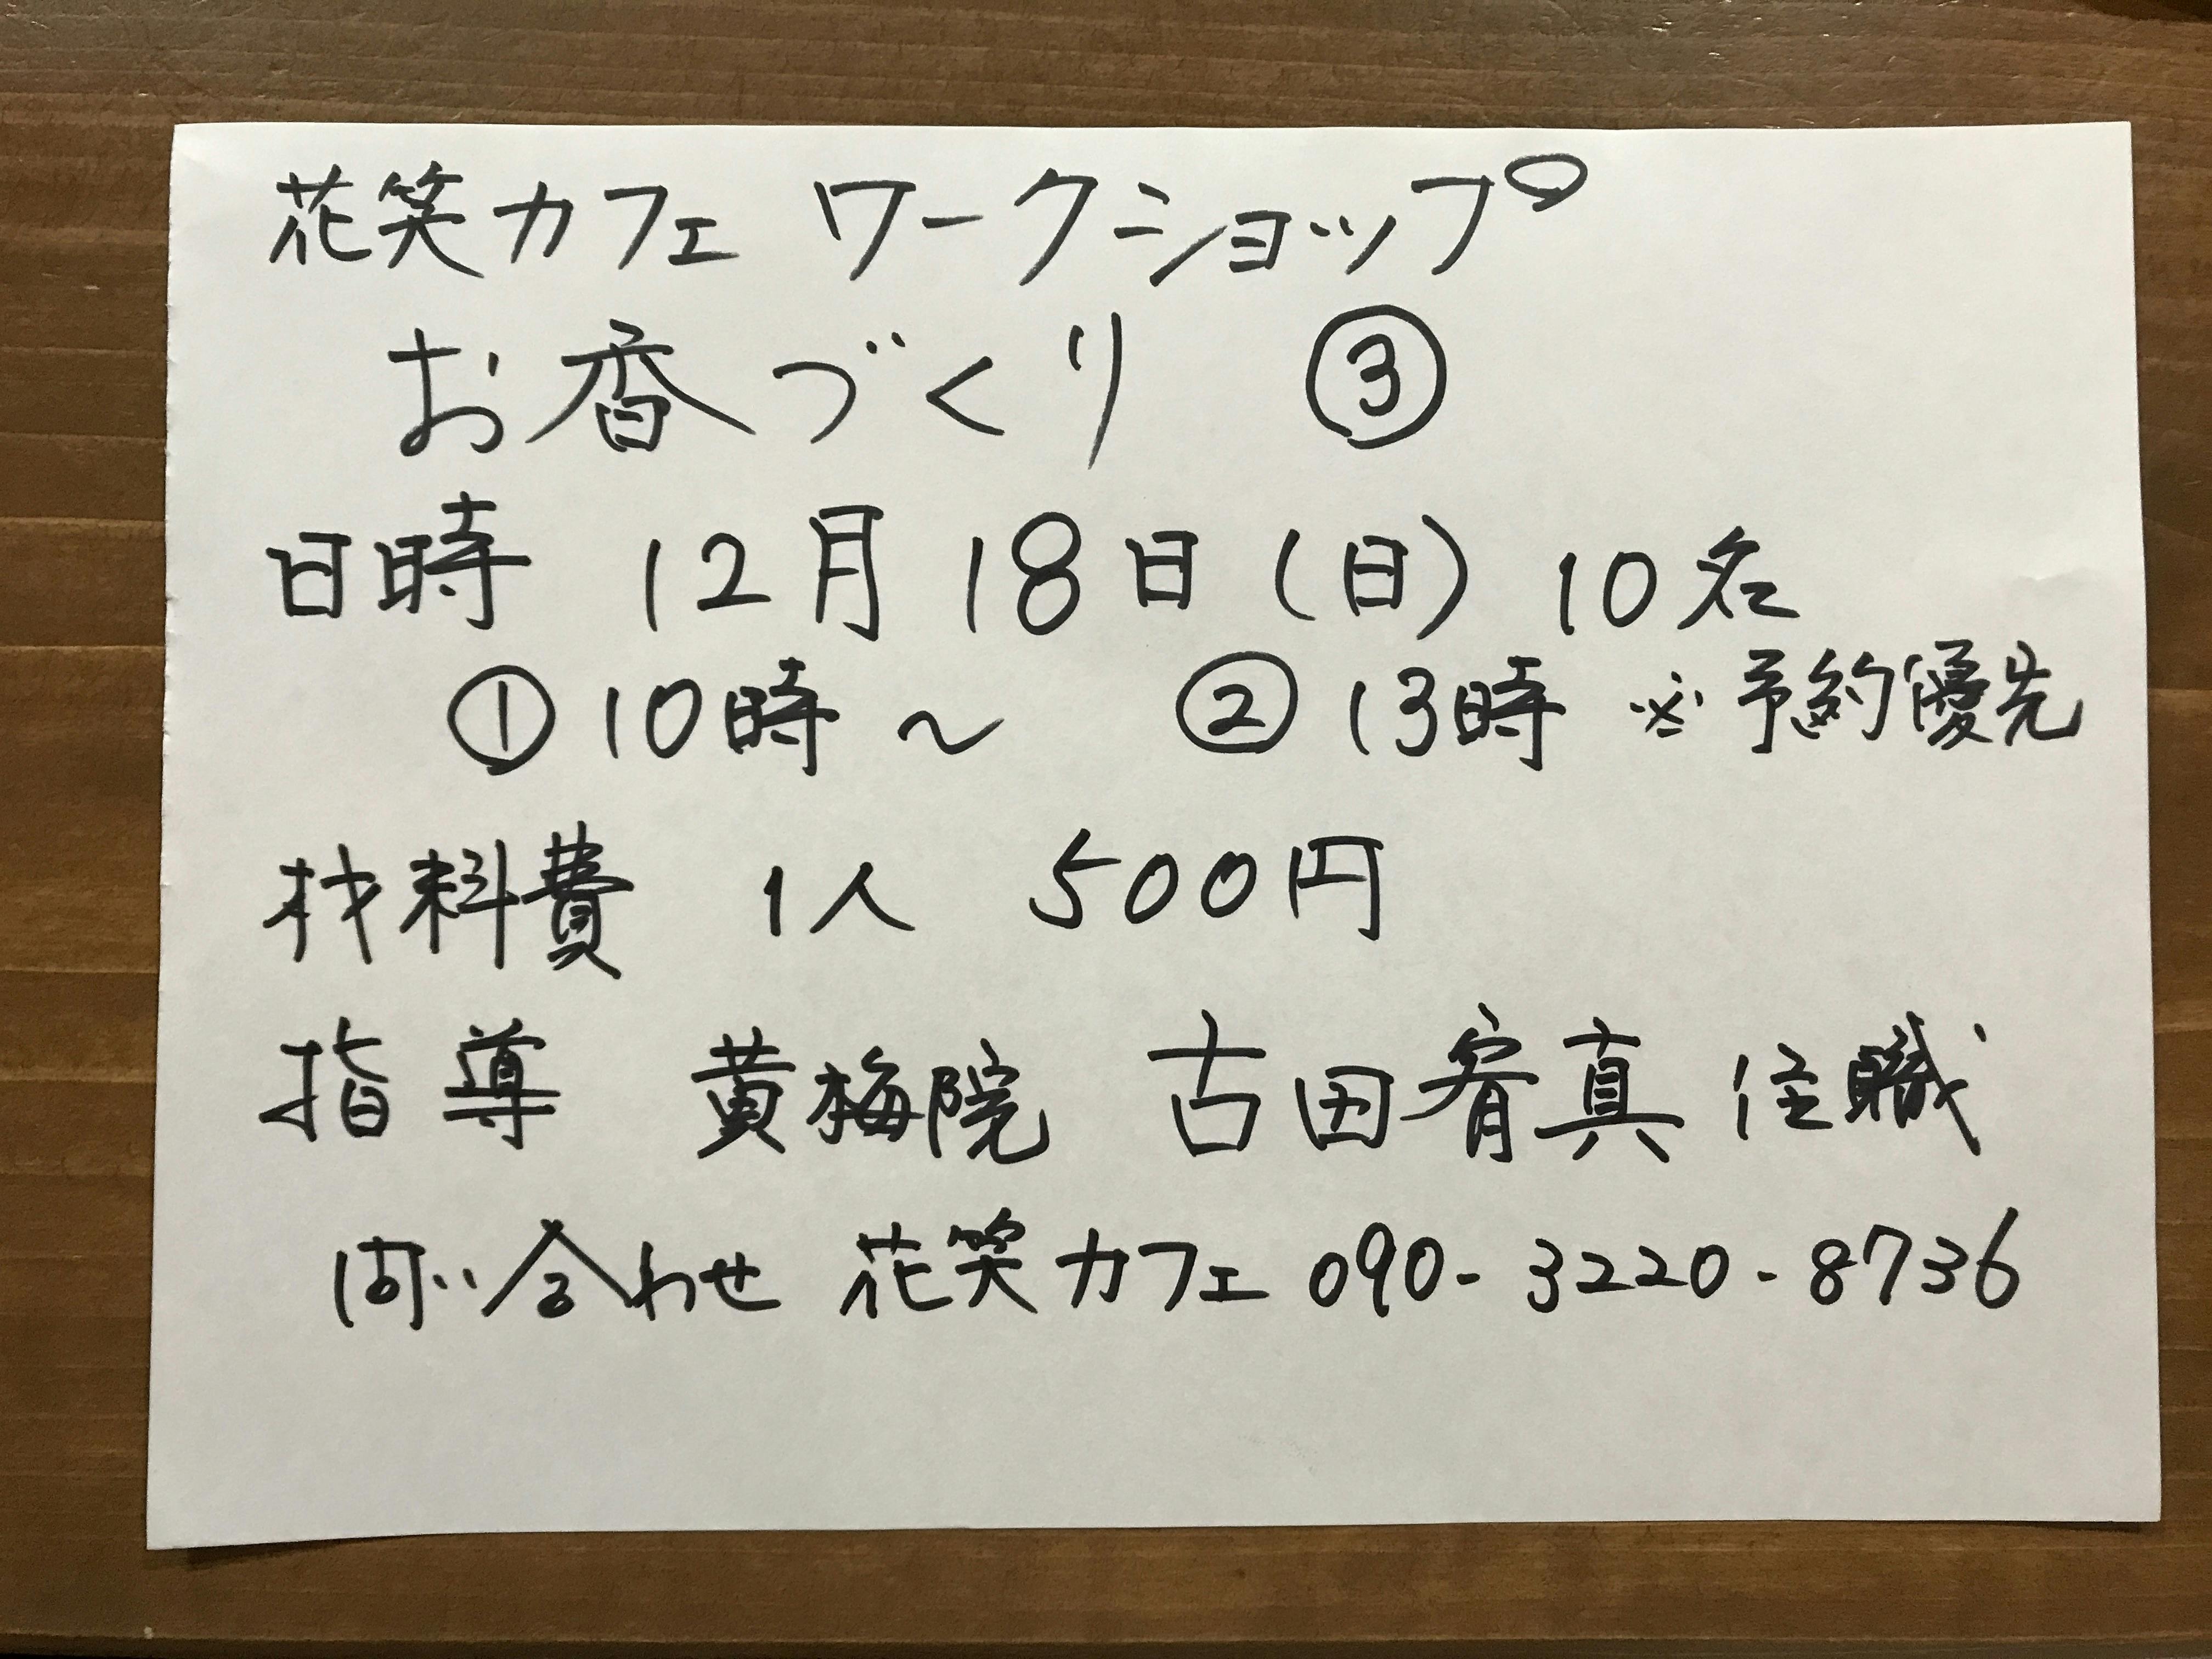 花笑カフェ ワークショップ
お香づくり ③
日時 12月18日(日) 10名
①10時～ ②13時 ※予約優先
材料費 1人 500円
指導 黄梅院 古田宥真 住職
問い合わせ 花笑カフェ 090-3220-8736